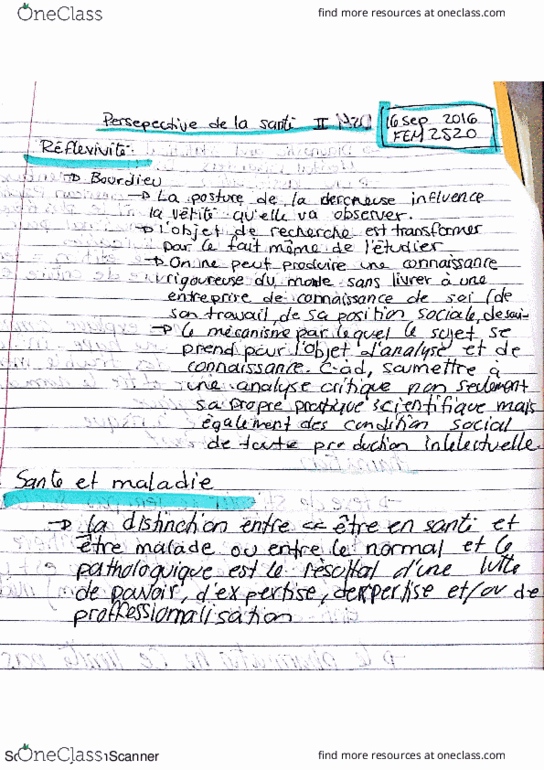 OneClass find more resources at oneclass.com
Persepective de la santi II
16 sep 2016
FEM2520
Réflexivité:
→ Bourdieu
→ La posture de la influence
la vétité qu'elle va observer.
→ l'objet de recherche est transformer
par le fait même de l'étudier
→ On ne peut produire une connaissance
rigoureuse du mode sans livrer à une
entreprise de connaissance de soi (de
son travail, de sa position sociale,
→ le mécanisme par lequel le sujet se
prend pour l'objet d'analyse et de
connaissance. C-àd, soumettre à
une analyse critique non seulement
sa propre pratique scientifique mais
également des condition social
de toute production intelectuelle.
Sante et maladie
→ la distinction entre << être en santi et
être malade ou entre le normal et le
pathologuique est le résultat d'une lutte
de pouvoir, d'expertise, dexpertise et/ou de
proffessionnalisation
OneClass Scanner find more resources at oneclass.com